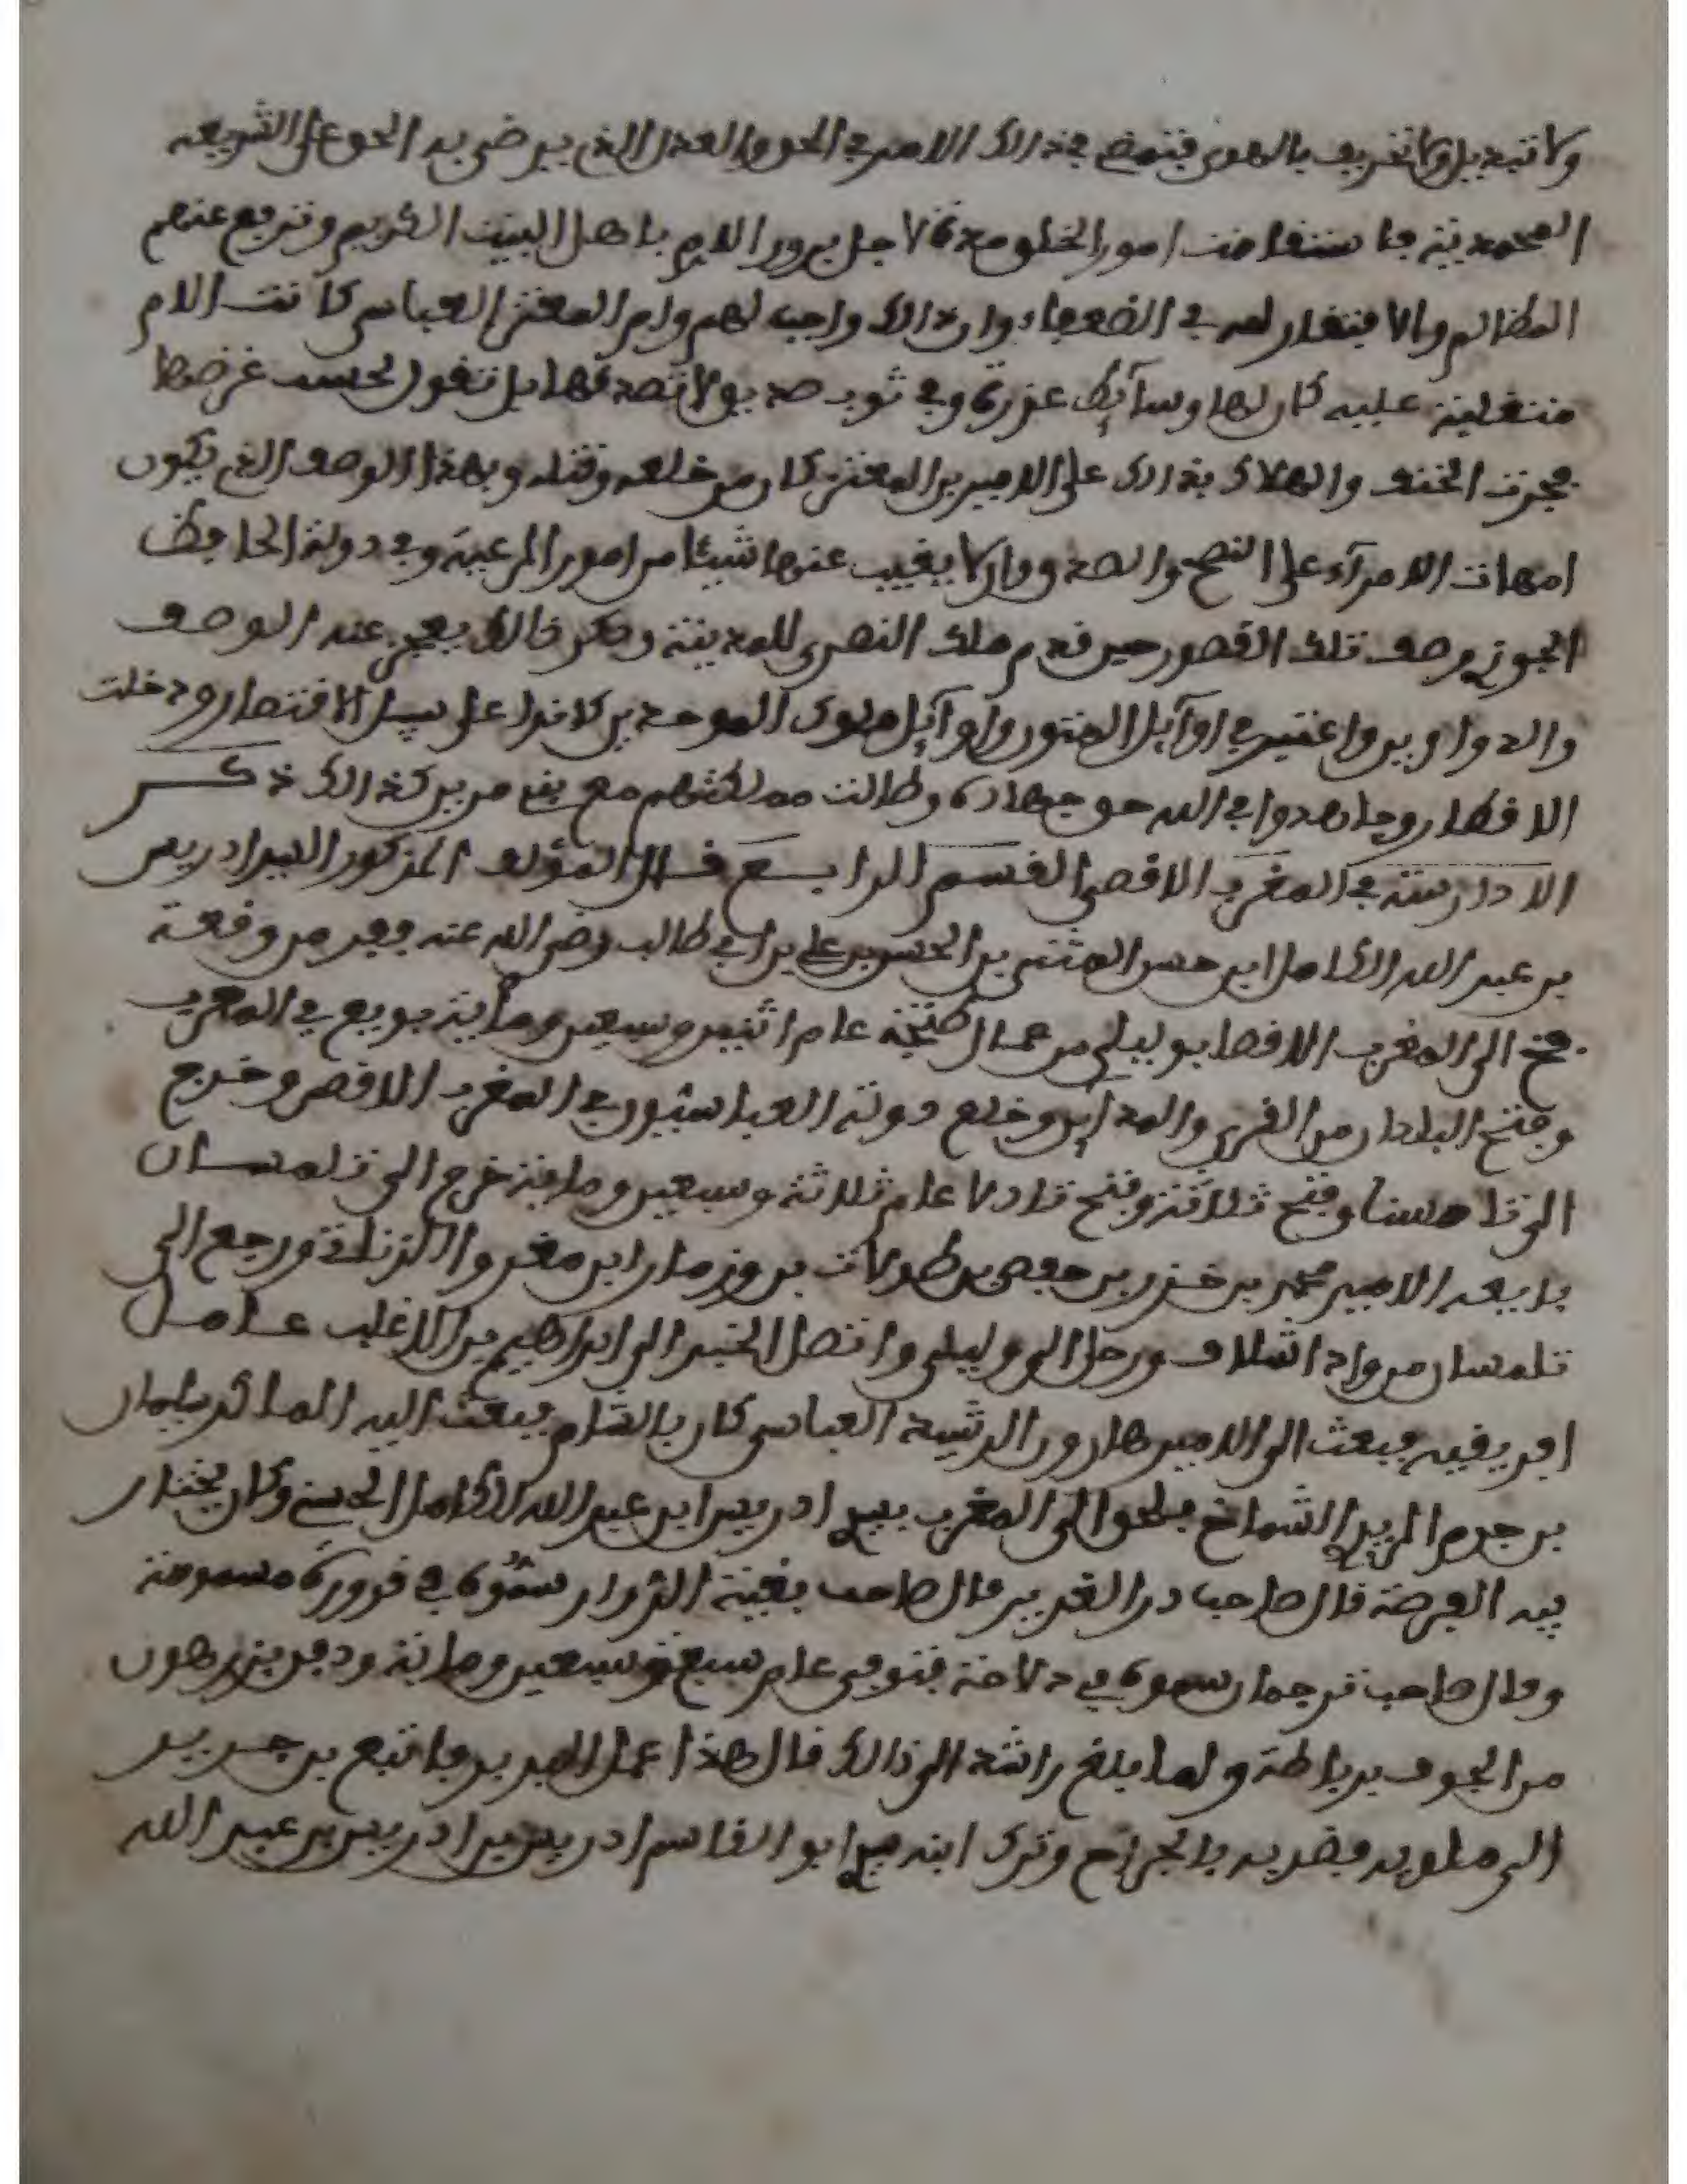 ولا تبديل ولا تحريف بالهوى فتمضي في ذالك الامر في الحق والعدل الذي يرضى به الحق على الشريعه
المحمدية فاستقامت امور الخلق مدة لاجل برور الام باهل البيت الكريم وترفع عنهم
المظالم والافتقار لهم في الضعفاء وان ذالك واجب لهم وام المعتز العباس كانت الام
متغلبة عليه كان لها وسائط عزرة وفي ثوب صديق لا تصدقها بل تقول بحسب غرضها
فجرت الحتف والهلاك بذالك على الامير بن المعتز كان من خلعه وقتله وبهذا الوصف الذي يكون
امهات الامرآء على النصح والصدق وان لا يغيب عنها شيئا من امور الرعية وفي دولة الحافظ
الجوزي وصف تلك القصور حين قدم ملك النصرى للمدينة وذكر ذالك يعجز عند الوصف
والدواوين واعتني في اوآئل المتون واوآئل ملوك الموحدين كلاندا على سبيل الاقتصار ودخلت
الافطار وجاهدوا في الله حق جهاده وطالت مملكتهم مع بني مرين كذالك ذكر
الادارسة في المغرب الاقصى القسم الرابع قال المؤلف المذكور السيد ادريس
بن عبد الله الكامل ابن حسن المثنى بن الحسن بن علي بن ابي طالب رضي الله عنه ففر من وقعة
فخ الى المغرب الاقصا بوليلي من عمال طنجة عام اثنين وسبعين ومائة بويع في المغرب
وفتح البلدان من القرى والمدآئن وخلع دولة العباسيون في المغرب الاقصى وخرج
الى تامسنا وفتح شلافة وفتح تادلا عام ثلاثة وسبعين ومائة خرج الى تلمسان
بايعه الامير محمد بن خزر بن حفص بن صولات بن وزمار ابن مغروا الزناتي ورجع الى
تلمسان من واد اشلاف ورحل الى وليلى واتصل الخبر الى ابراهيم بن الاغلب عامل
افريقيه فبعث الى الامير هارون الرشيد العباسي كان بالشام فبعث اليه الماكر سليمان
بن جرير المريد الشماخ فلحق الى المغرب بسيد ادريس ابن عبد الله الكامل الحسني وكان يختار
فيه الفرصة قال صاحب در الغرير قال صاحب بغية الزوار سقوه في قرورة مسمومة
وقال صاحب ترجمان سموه في دلاحة فتوفي عام سبعة وسبعين ومائة ودفن بزرهون
من الجوف برباطه ولما بلغ راشد الى ذالك قال هذا عمل المدبر فاتبع بن جرير
الى ملويه فضربه بالجراح وترك ابنه سيد ابو القاسم ادريس بن ادريس بن عبد الله